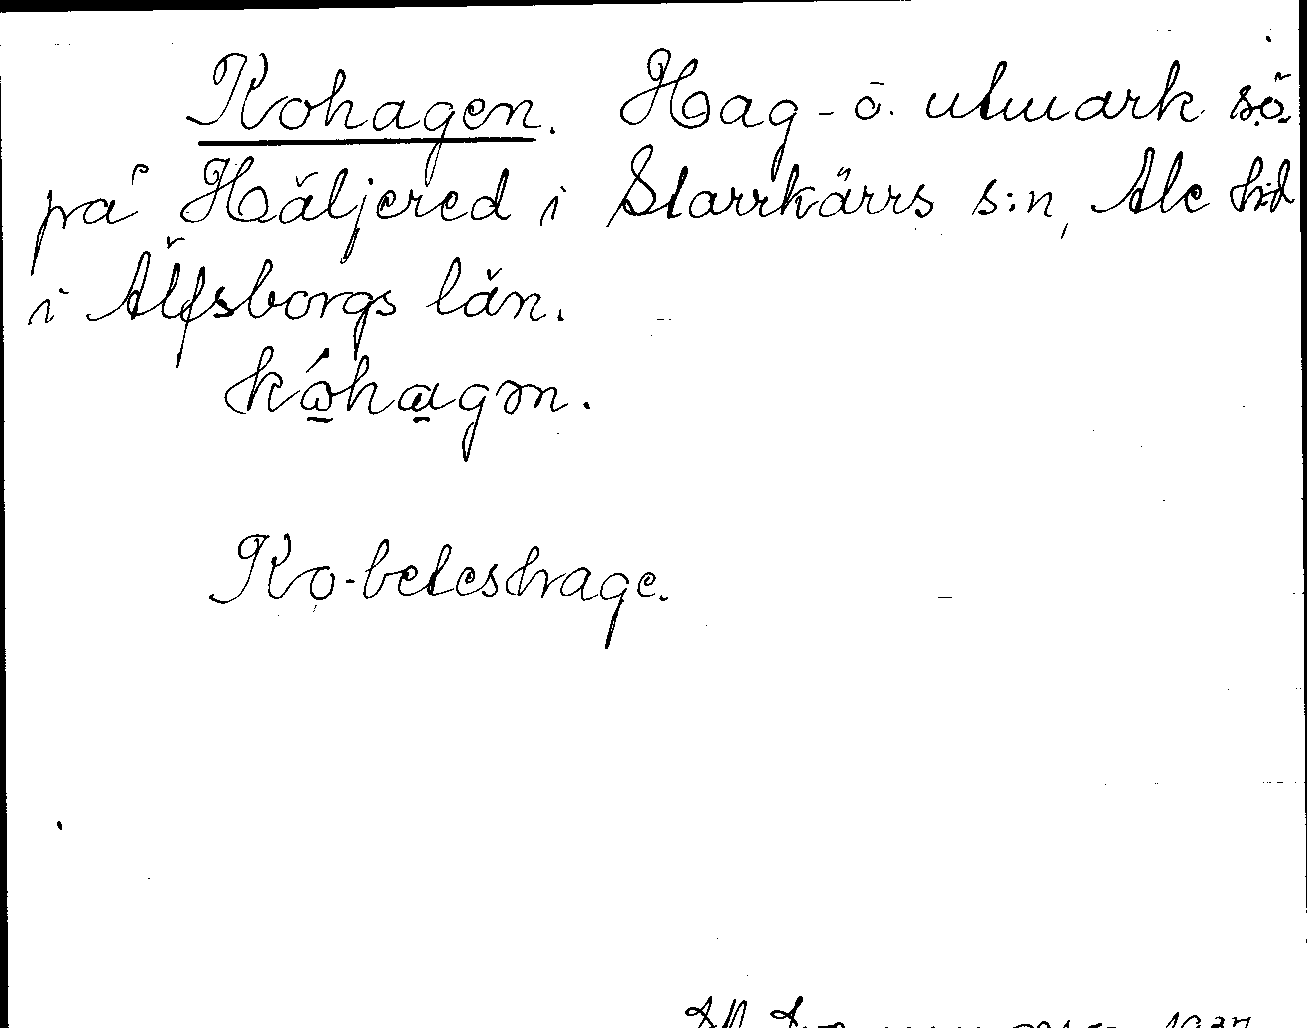 Kohagen. Hag- ö. utmark sö.
på Häljered i Starrkärrs s:n, Ale h:d
i Älfsborgs län.
kóhagən.
Ko-beteshage.
1937